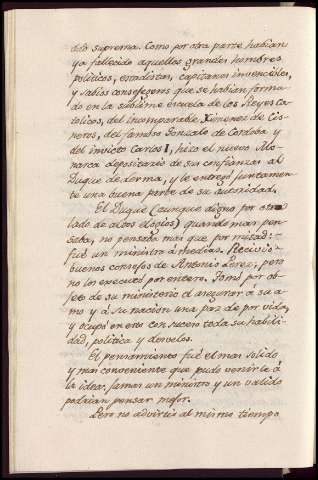 dad suprema. Como por otra parte habian
ya fallecido aquellos grandes hombres
politicos, estadistas, capitanes invencibles,
y sabios consegeros que se habian forma-
do en la sublime escuela de los Reyes Ca-
tolicos, del incomparable Ximenez de Cis-
neros, del famoso Gonzalo de Cordoba y
del invicto Carlos I, hizo el nuevo Mo-
narca depositario de sus confianzas al
Duque de Lerma, y le entregó juntamen-
te una buena parte de su autoridad.
El Duque (aunque digno por otro
lado de altos elogios) quando mas pen-
saba, no pensaba mas que por mitad:
fué un ministro á medias. Recivió
buenos consejos de Antonio Perez; pero
no los executó por entero. Tomó por ob-
jeto de su ministerio el asegurar á su a-
mo y á su nacion una paz de por vida,
y ocupó en esto con suceso toda su habili-
dad, politica y desvelos.
El pensamiento fué el mas solido
y mas conveniente que pudo venirle á
la idea. Jamas un ministro y un valido
podrian pensar mejor.
Pero no advirtió al mismo tiempo